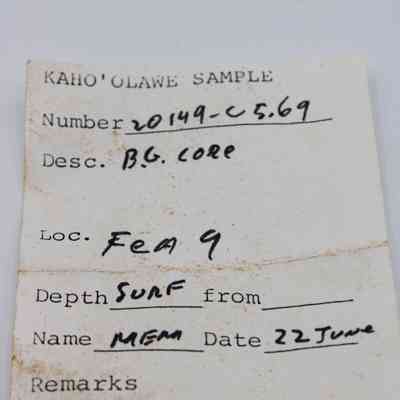 KAHO'OLAWE SAMPLE
Number 20149-C5.69
Desc. B.G. CORE
Loc. FeA 9
Depth SURF from
Name MEM Date 22 June
Remarks